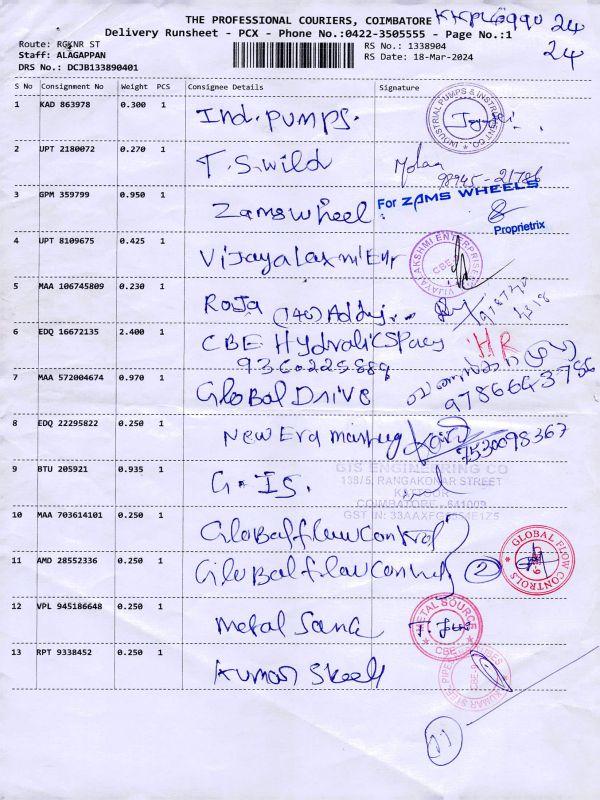 THE PROFESSIONAL COURIERS, COIMBATORE
24
Delivery Runsheet - PCX - Phone No.:0422-3505555 - Page No.:1
24
Route: RGKNR ST RS No.: 1338904
Staff: ALAGAPPAN RS Date: 18-Mar-2024
DRS No.: DCJB133890401
S No Consignment No Weight PCS Consignee Details Signature
1 KAD 863978 0.300 1 Ind. Pumps.
2 UPT 2180072 0.270 1 T.S. Wild Mohan
98945-21786
3 GPM 359799 0.950 1 Zamswheel For ZAMS WHEELS
Proprietrix
4 UPT 8109675 0.425 1 Vijayalaxmi Enr
5 MAA 106745809 0.230 1 Roja (140) Addy
6 EDQ 16672135 2.400 1 CBE Hydralic Spares HR
9360225889
7 MAA 572004674 0.970 1 Global Drive 9786643786
8 EDQ 22295822 0.250 1 New Era 7530098367
9 BTU 205921 0.935 1 G. IS. GIS ENGINEERING CO
138/5, RANGAKONAR STREET
KATTOOR
COIMBATORE - 641009
GST IN: 33AAXFG
10 MAA 703614101 0.250 1 Global flow Control
11 AMD 28552336 0.250 1 Global flow Control 2 GLOBAL FLOW CONTROLS
12 VPL 945186648 0.250 1 Metal METAL SOURCE CBE
13 RPT 9338452 0.250 1 Kumar Steel
11